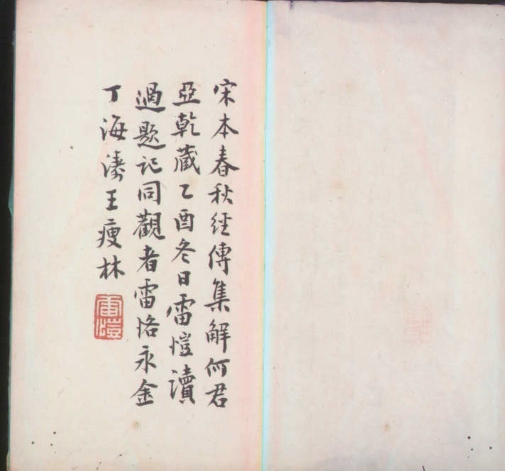 宋本春秋经傳集解何君
亞乾藏乙酉冬日雷愷讀
過題记同觀者雷恪永金
丁海濤王瘦林
雷愷